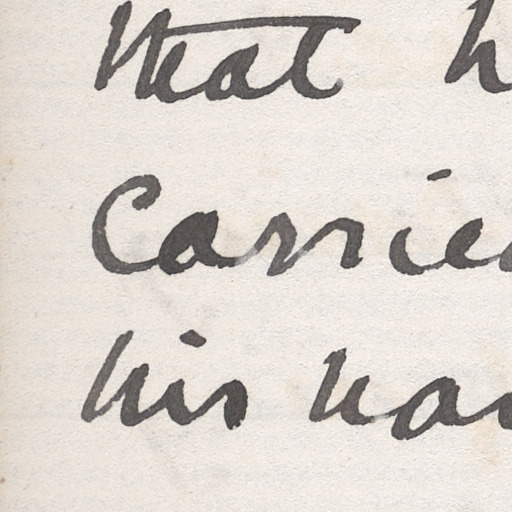 that h
carried
his han